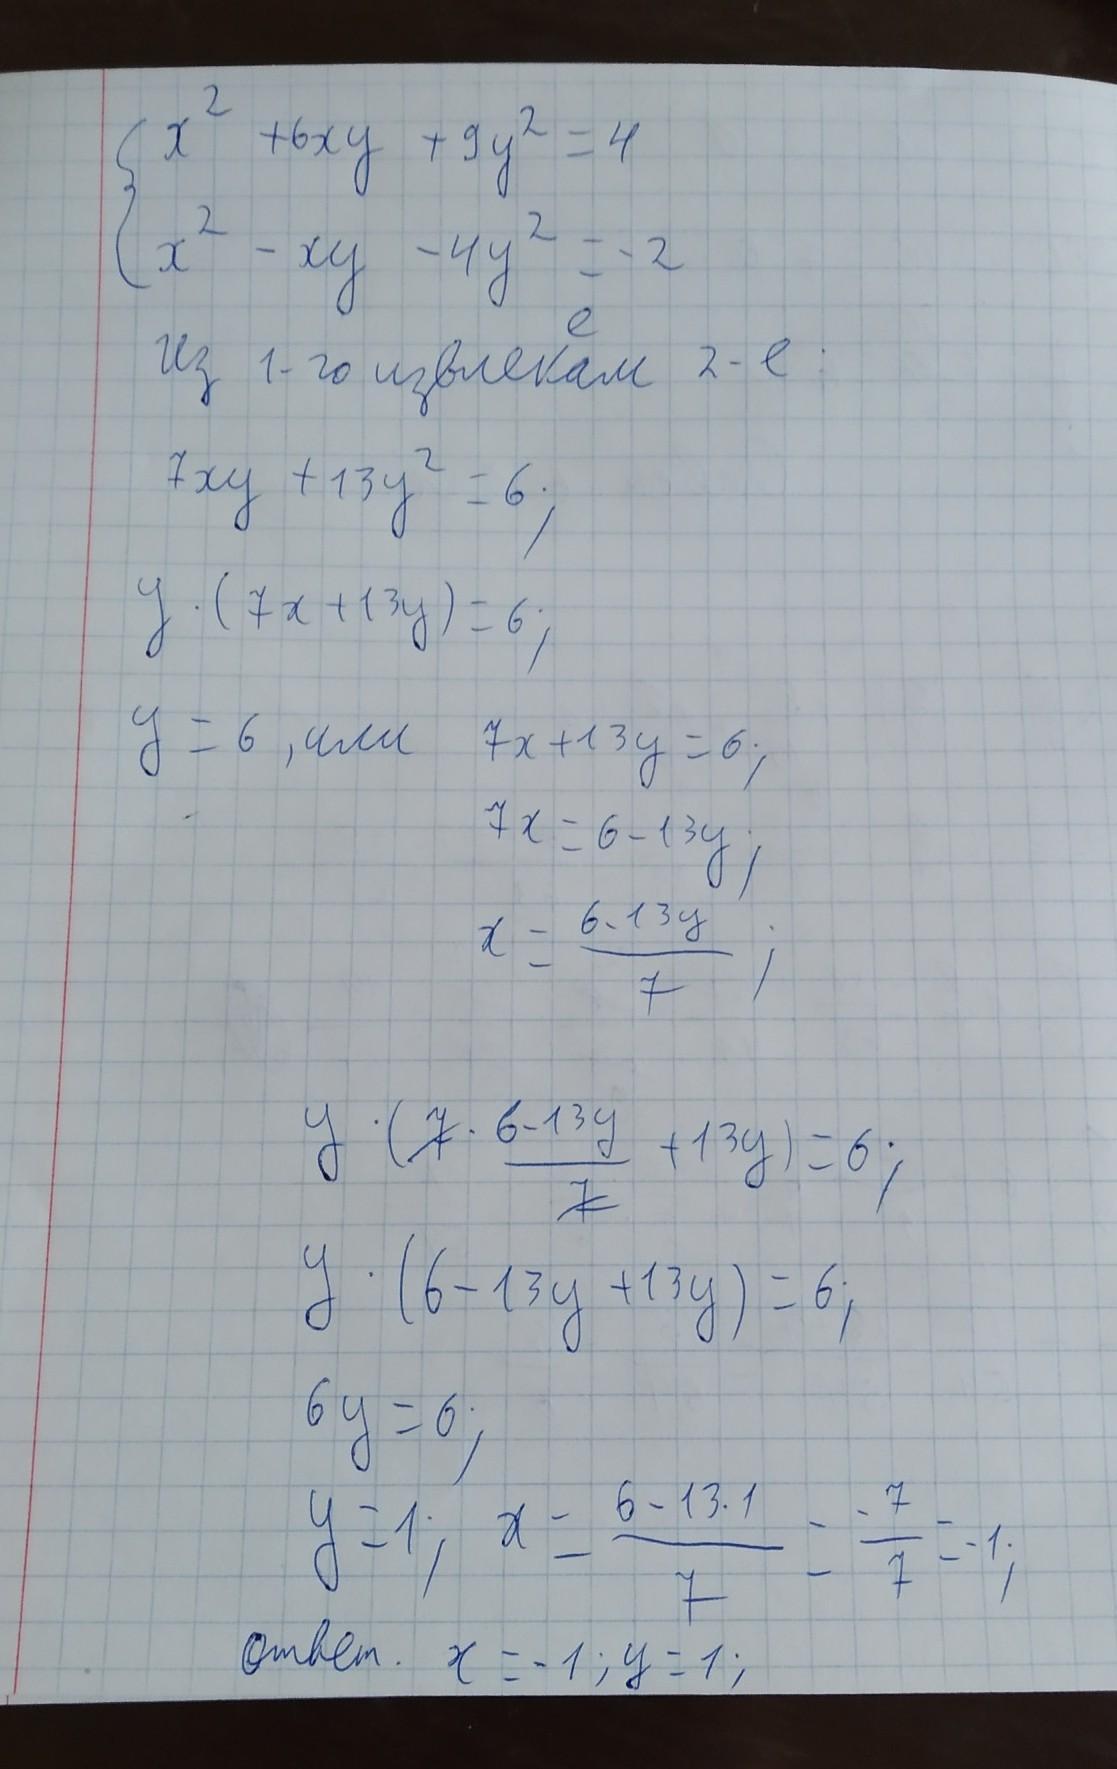 x² + 6xy + 9y² = 4
x² - xy - 4y² = -2
Из 1-го извлекаем 2-е:
7xy + 13y² = 6;
y · (7x + 13y) = 6;
y = 6, или 7x + 13y = 6;
7x = 6 - 13y;
x = (6 - 13y)/7;
y · (7 · (6 - 13y)/7 + 13y) = 6;
y · (6 - 13y + 13y) = 6;
6y = 6;
y = 1; x = (6 - 13·1)/7 = -7/7 = -1;
ответ. x = -1; y = 1;